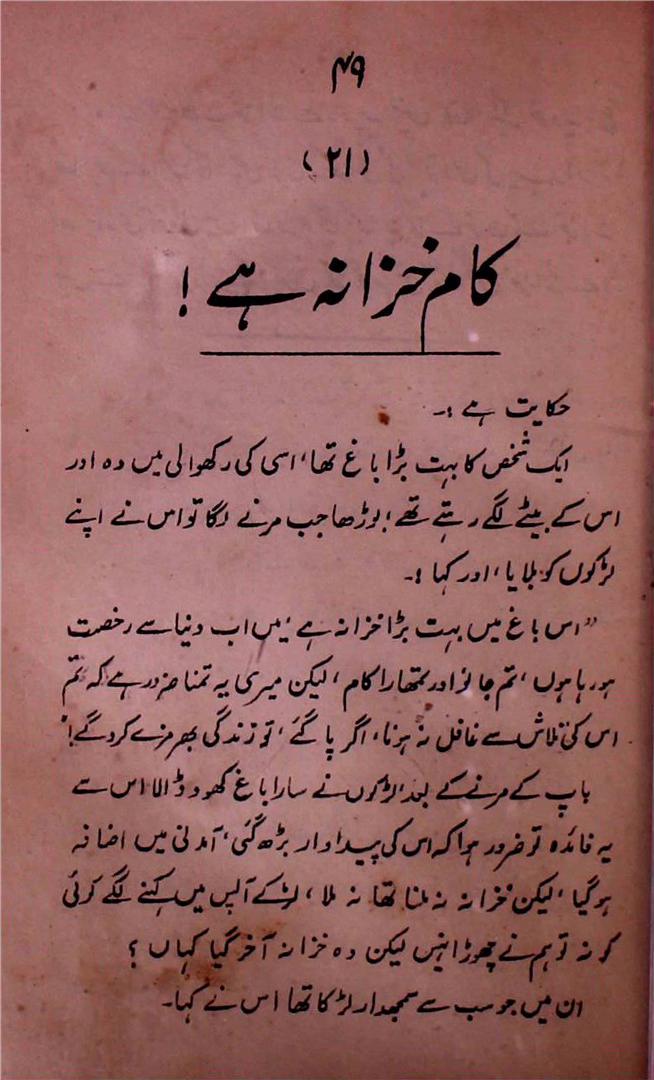 ۴۹
(۲۱)
کام خزانہ ہے!
حکایت ہے :۔
ایک شخص کا بہت بڑا باغ تھا، اسی کی رکھوالی میں وہ اور
اس کے بیٹے لگے رہتے تھے؛ بوڑھا جب مرنے لگا تو اس نے اپنے
لڑکوں کو بلایا، اور کہا :۔
"اس باغ میں بہت بڑا خزانہ ہے، میں اب دنیا سے رخصت
ہو رہا ہوں، تم جانو اور تمھارا کام، لیکن میری یہ تمنا ضرور ہے کہ تم
اس کی تلاش سے غافل نہ ہونا، اگر پا گئے، تو زندگی بھر مزے کرو گے!"
باپ کے مرنے کے بعد، لڑکوں نے سارا باغ کھود ڈالا اس سے
یہ فائدہ تو ضرور ہوا کہ اس کی پیداوار بڑھ گئی، آمدنی میں اضافہ
ہو گیا، لیکن خزانہ نہ ملنا تھا نہ ملا، لڑکے آپس میں کہنے لگے کوئی
کونہ تو ہم نے چھوڑا نہیں لیکن وہ خزانہ آخر گیا کہاں؟
ان میں جو سب سے سمجدار لڑکا تھا اس نے کہا۔